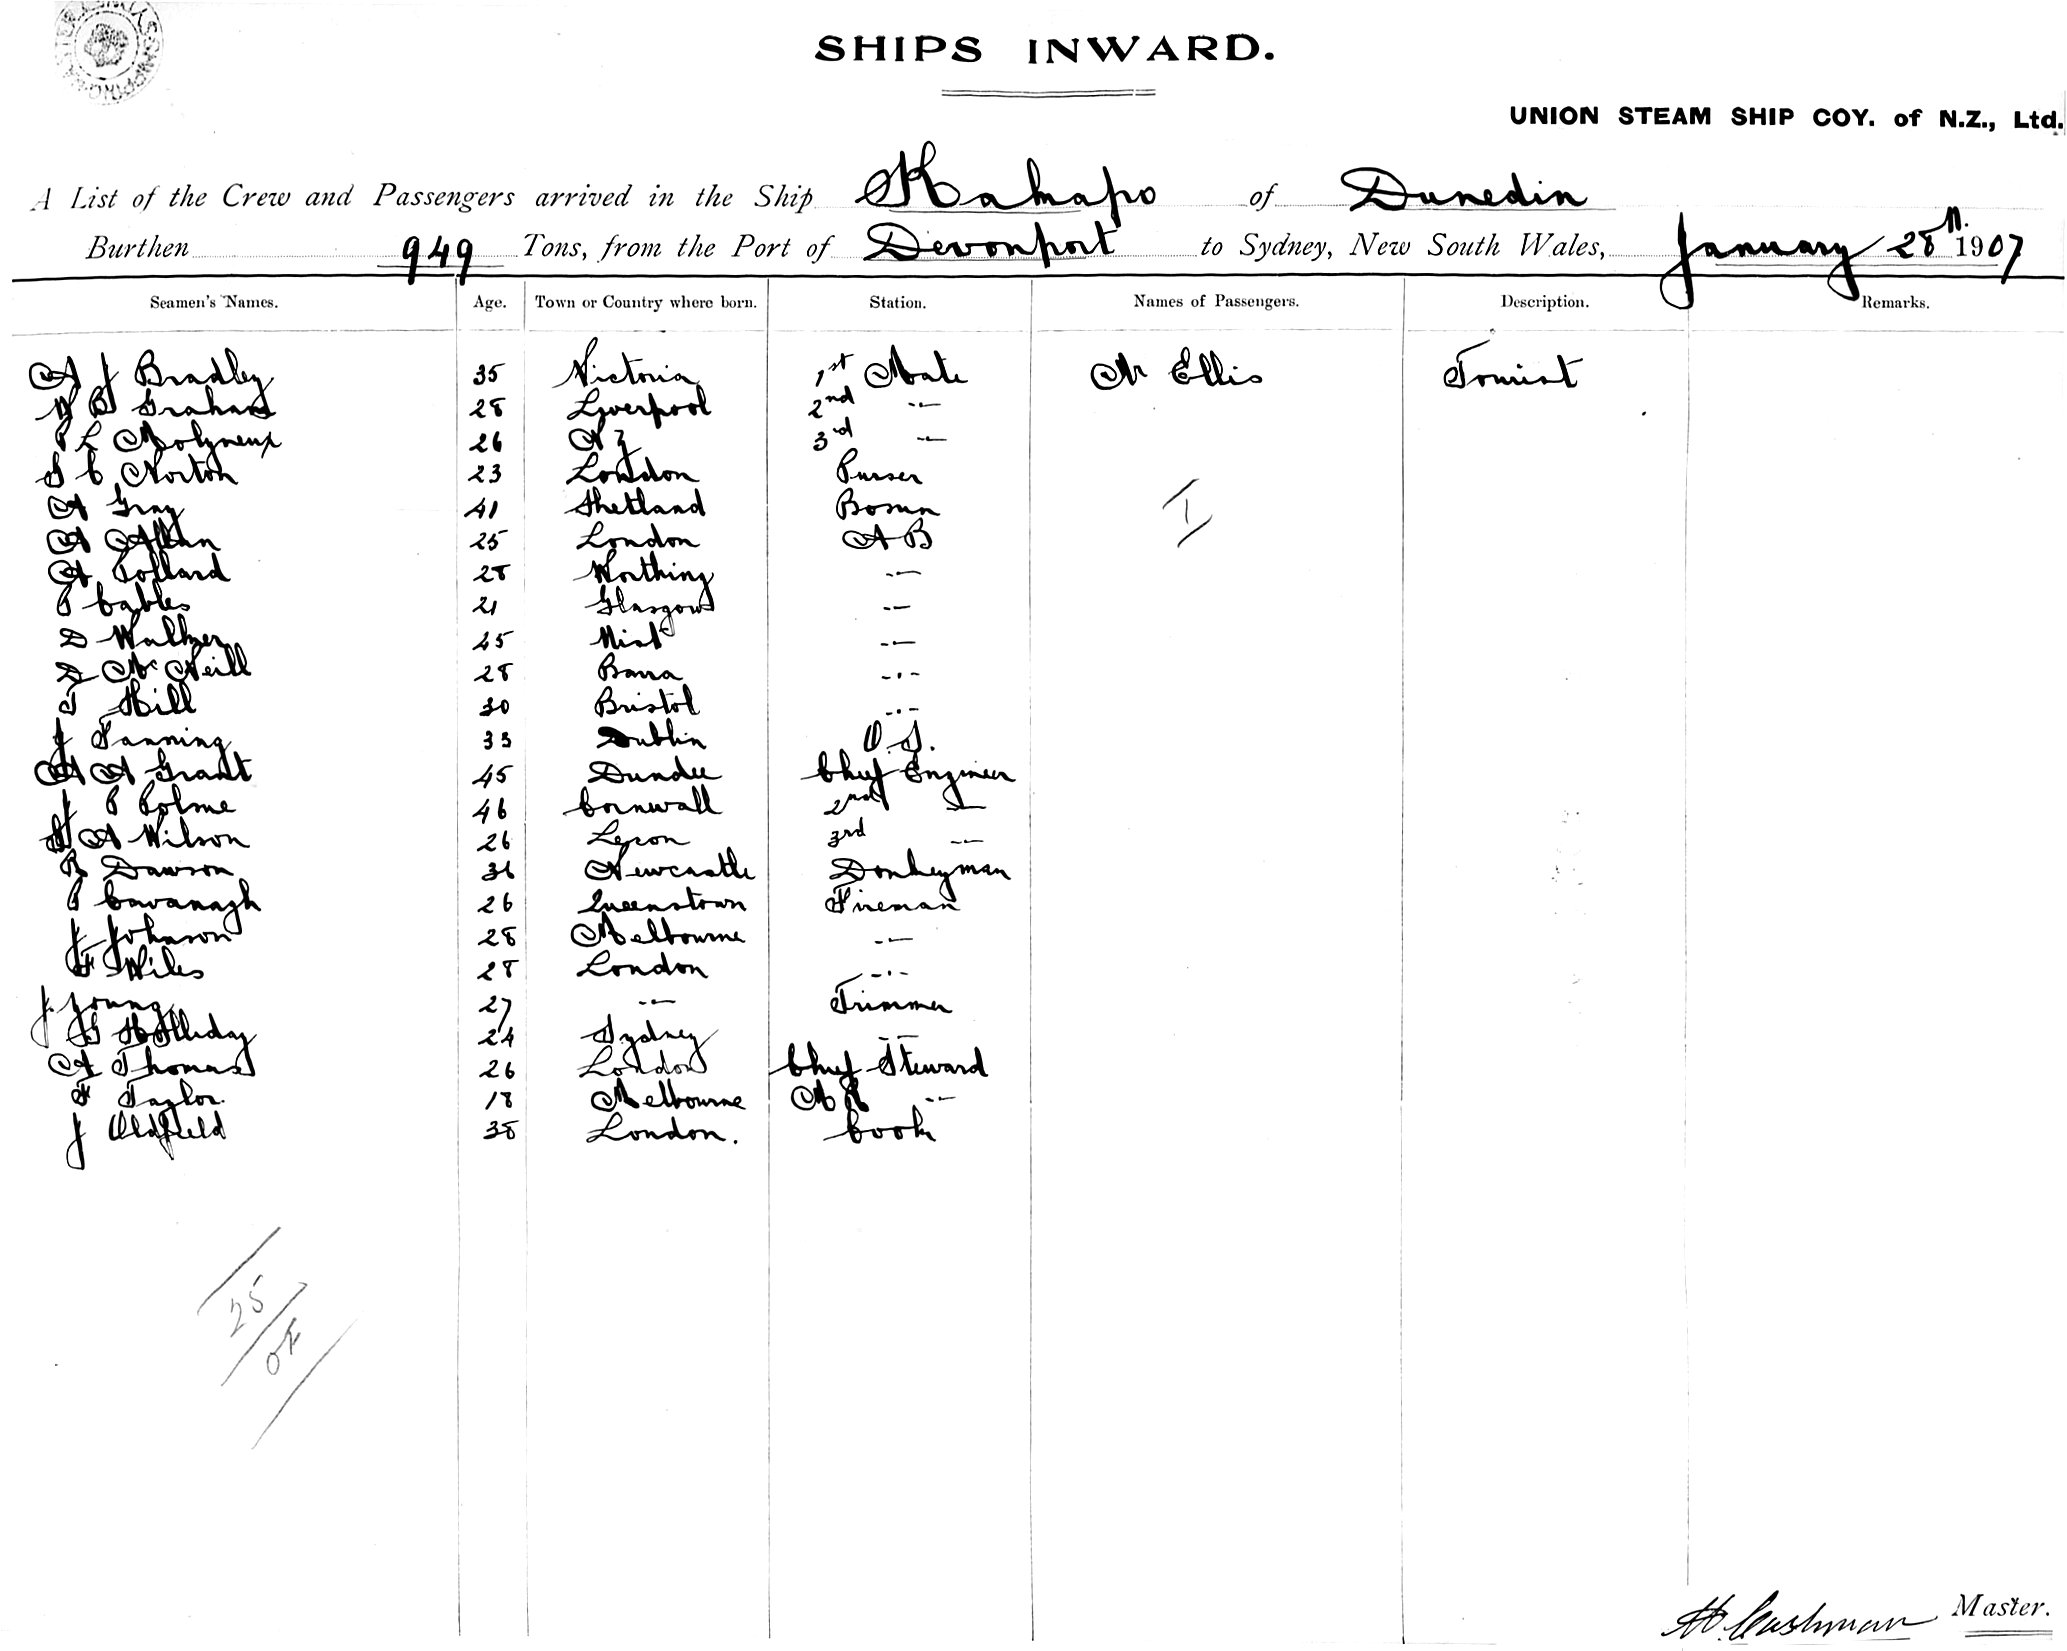 SHIPS INWARD.
UNION STEAM SHIP COY. of N.Z., Ltd.
A List of the Crew and Passengers arrived in the Ship Kakapo of Dunedin
Burthen 949 Tons, from the Port of Devonport to Sydney, New South Wales, January 28th 1907
Seamen's Names. Age. Town or Country where born. Station. Names of Passengers. Description. Remarks.
A J Bradley 35 Victoria 1st Mate Mr Ellis Tourist
W B Graham 28 Liverpool 2nd -"-
P L Molyneux 26 N Z 3rd -"-
S C Norton 23 London Purser
A Gray 41 Shetland Bosun
A Allan 25 London A B
A Pollard 28 Worthing -"-
P Cables 21 Glasgow -"-
D Walker 25 -"-
D McNeill 28 Barra -"-
T Hill 30 Bristol -"-
J Fanning 33 Dublin O.S.
A A Grant 45 Dundee Chief Engineer
J P Polme 46 Cornwall 2nd -"-
A Wilson 26 3rd -"-
R Dawson 36 Newcastle Donkeyman
P Cavanagh 26 Queenstown Fireman
J Johnson 28 Melbourne -"-
F Wiles 28 London -"-
J. Young 27 -"- Trimmer
G Holliday 24 Sydney -"-
A Thomas 26 London Chief Steward
F Taylor. 18 Melbourne -"-
J Oldfield 38 London. Cook
I
25
H. Cushman Master.